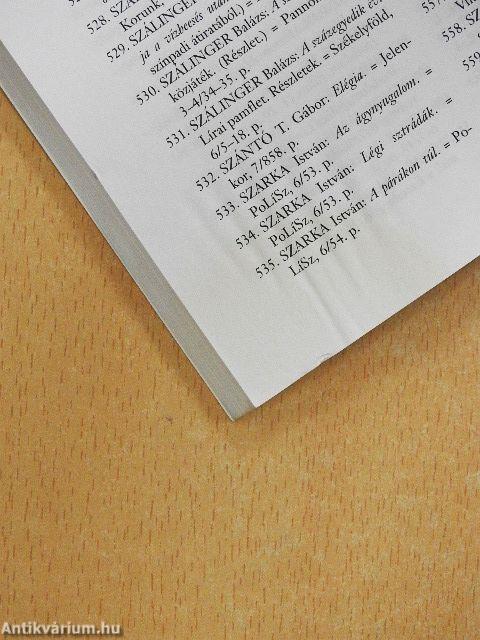 528. SZÁ
Korunk,
529. SZÁLINGER
ja a vízbeesés után
színpadi átiratából.) =
530. SZÁLINGER Balázs: A sz
közjáték. (Részlet.) = Pannon
3–4/34–35. p.
531. SZÁLINGER Balázs: A százegyedik év.
Lírai pamflet. Részletek. = Székelyföld,
6/5–18. p.
532. SZÁNTÓ T. Gábor: Elégia. = Jelen-
kor, 7/858. p.
533. SZARKA István: Az ágynyugalom. =
PoLíSz, 6/53. p.
534. SZARKA István: Légi sztrádák. =
PoLíSz, 6/53. p.
535. SZARKA István: A párákon túl. = Po-
LíSz, 6/54. p.
557.
Vi
558. S
559.
Antikvárium.hu